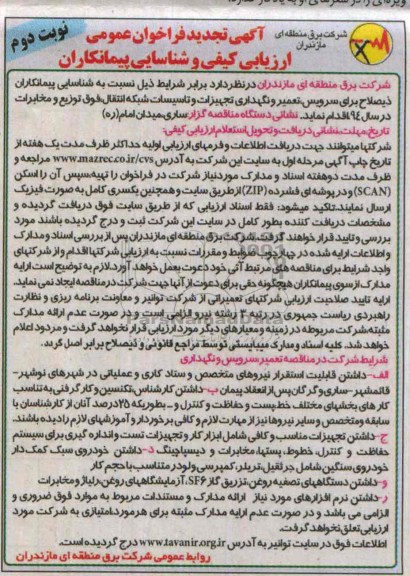 شرکت برق منطقه ای مازندران
آگهی تجدید فراخوان عمومی
نوبت دوم
ارزیابی کیفی و شناسایی پیمانکاران
شرکت برق منطقه ای مازندران در نظر دارد برابر شرایط ذیل نسبت به شناسایی پیمانکاران
ذیصلاح برای سرویس، تعمیر و نگهداری تجهیزات و تاسیسات شبکه انتقال، فوق توزیع و مخابرات
در سال ۹۴ اقدام نماید. نشانی دستگاه مناقصه گزار: ساری، میدان امام (ره)
تاریخ، مهلت، نشانی دریافت و تحویل استعلام ارزیابی کیفی:
شرکتها میتوانند جهت دریافت اطلاعات و فرمهای ارزیابی اولیه حداکثر ظرف مدت یک هفته از
تاریخ چاپ آگهی مرحله اول به سایت این شرکت به آدرس www.mazrec.co.ir/cvs مراجعه و
ظرف مدت دو هفته اسناد و مدارک مورد نیاز شرکت در فراخوان را تهیه، سپس آن را اسکن
(SCAN) و در پوشه ای فشرده (ZIP) از طریق سایت و همچنین بکسری کامل به صورت فیزیک
ارسال نمایند. تاکید میشود: فقط اسناد ارزیابی که از طریق سایت فوق دریافت گردیده و
مشخصات دریافت کننده بطور کامل در سایت این شرکت ثبت و درج گردیده باشند مورد
بررسی و تایید قرار خواهند گرفت. شرکت برق منطقه ای مازندران پس از بررسی اسناد و مدارک
و اطلاعات ارایه شده در چهارچوب ضوابط و مقررات نسبت به ارزیابی شرکتها اقدام و از شرکتهای
واجد شرایط برای مناقصه های مرتبط آتی خود دعوت بعمل خواهد آورد. لازم به توضیح است ارایه
مدارک از سوی پیمانکاران هیچگونه حقی برای دعوت از آنها جهت شرکت در مناقصه ایجاد نمی نماید.
ارایه تایید صلاحیت ارزیابی شرکتهای تعمیراتی از شرکت توانیر و معاونت برنامه ریزی و نظارت
راهبردی ریاست جمهوری در رتبه ۳ رشته نیرو الزامی است و در صورت عدم ارائه مدارک
مثبته شرکت مربوطه در زمینه و معیارهای دیگر مورد ارزیابی قرار نخواهد گرفت و مردود اعلام
خواهد شد. کلیه اسناد و مدارک میبایستی توسط مراجع قانونی و ذیصلاح برابر اصل گردد.
شرایط شرکت در مناقصه تعمیر سرویس و نگهداری
الف- داشتن قابلیت استقرار نیروهای متخصص و ستاد کاری و عملیاتی در شهرهای نوشهر-
قائمشهر- ساری و گرگان پس از انعقاد پیمان ب- داشتن کارشناس، تکنسین و کارگر فنی به تناسب
کارهای بخشهای مختلف خط، پست و حفاظت و کنترل و .. بطوریکه ۲۵ درصد آنان از کارشناسان با
سابقه و متخصص و سایر نیروها نیز از مهارت لازم و کافی برخوردار و آموزشهای لازم را دیده باشند.
ج- داشتن تجهیزات مناسب و کافی شامل ابزار کار و تجهیزات تست و اندازه گیری برای سیستم
حفاظت و کنترل، خطوط، پستها، مخابرات و دیسپاچینگ د- داشتن خودروی سبک کمک دار
خودروی سنگین شامل جرثقیل، تریلر، کمپرسی و لودر متناسب با حجم کار
و- داشتن دستگاههای تصفیه روغن، تزریق گاز SF6، آزمایشگاههای روغن، رلیاژ و مخابرات
ر- داشتن نرم افزارهای مورد نیاز ارائه مدارک و مستندات مربوط به موارد فوق ضروری و
الزامی می باشد و در صورت عدم ارایه مدارک مثبته برای هر مورد، امتیازی به شرکت مورد
ارزیابی تعلق نخواهد گرفت.
اطلاعات فوق در سایت توانیر به آدرس www.tavanir.org.ir درج گردیده است.
روابط عمومی شرکت برق منطقه ای مازندران